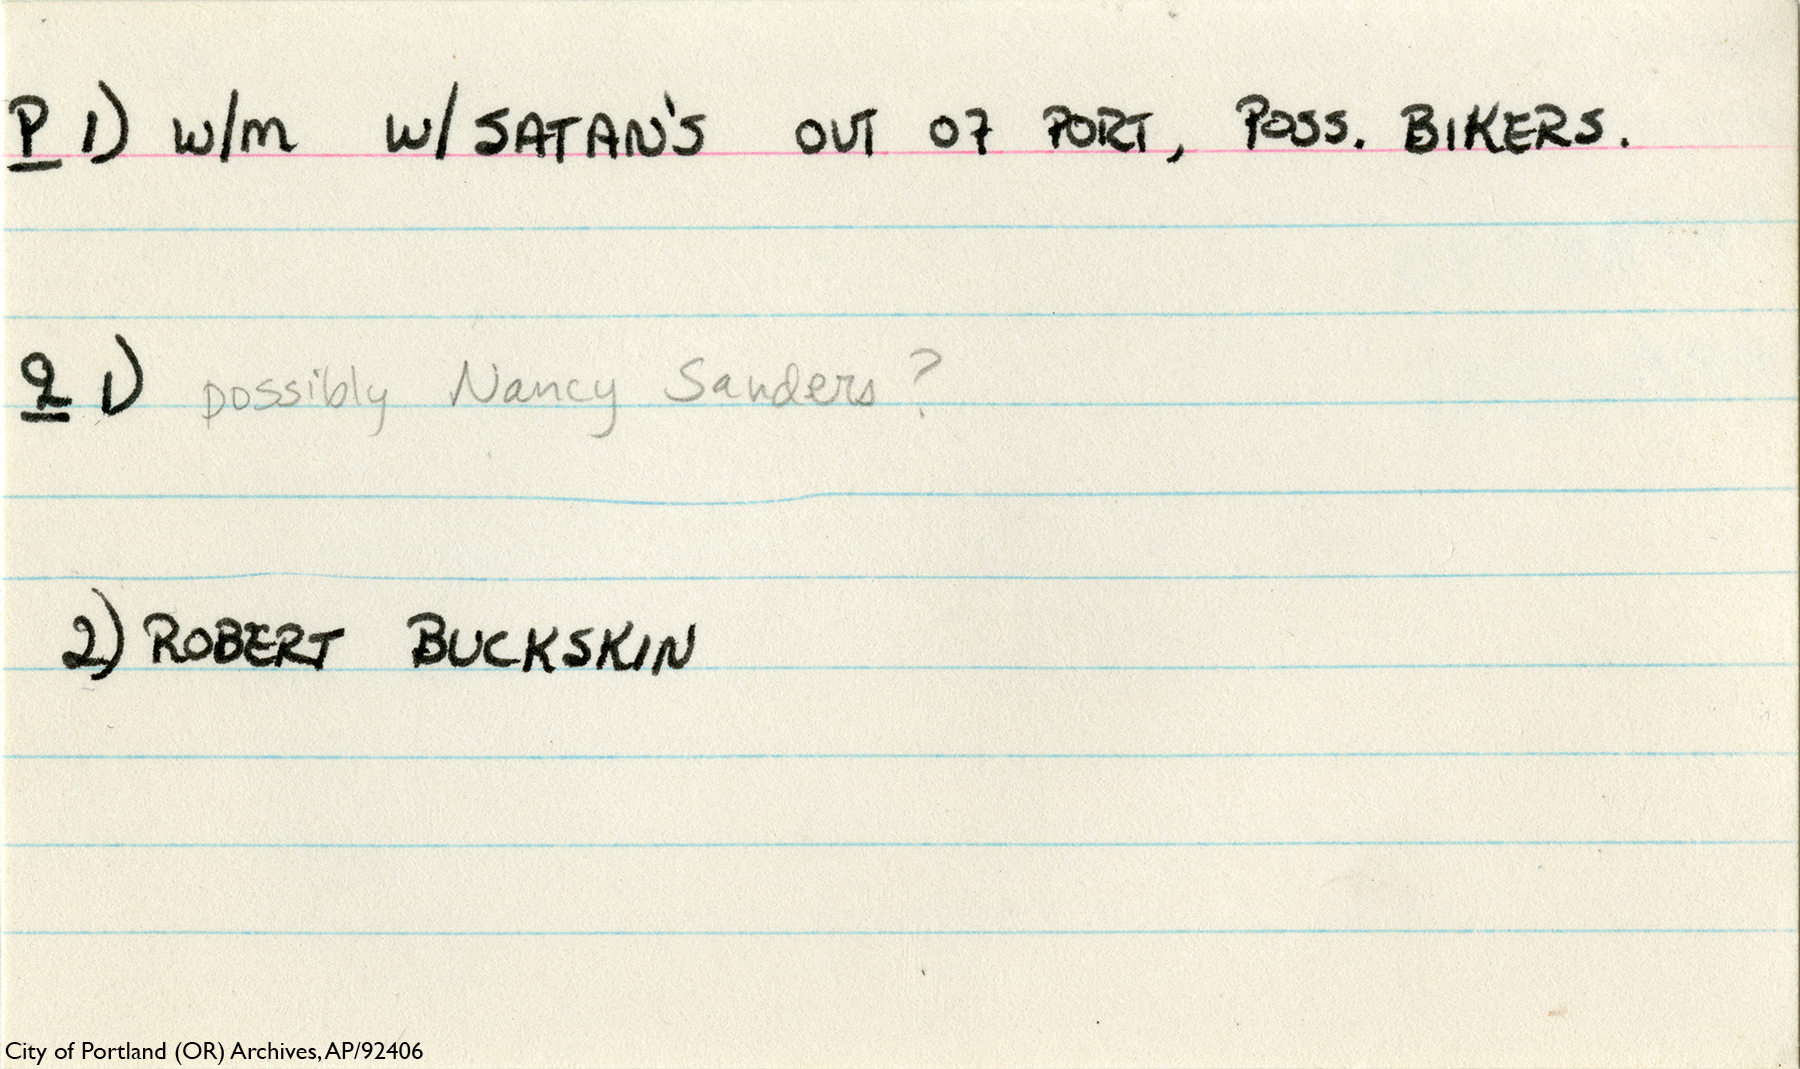 P 1) W/M W/SATAN'S OUT OF PORT, POSS. BIKERS.
Q 1) possibly Nancy Sanders?
2) ROBERT BUCKSKIN
City of Portland (OR) Archives, AP/92406